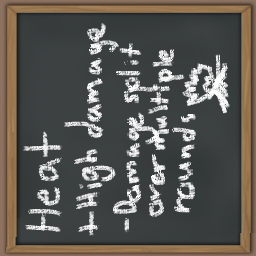 Heat
+High damage
-Damage split
over multiple
rounds